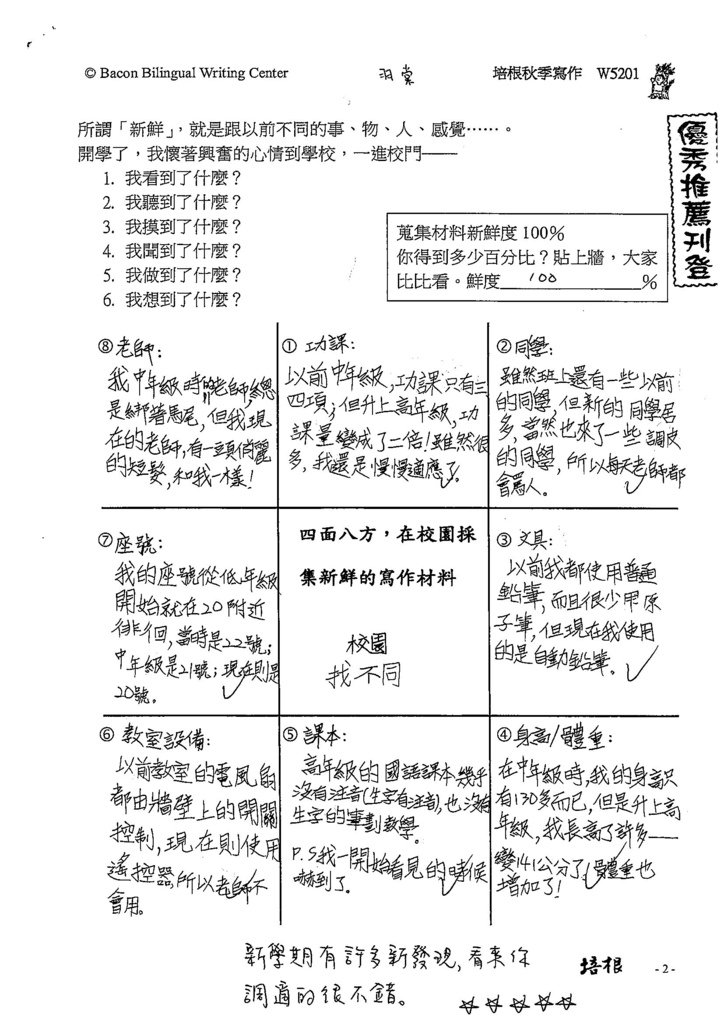 © Bacon Bilingual Writing Center 羽棠 培根秋季寫作 W5201
優秀推薦刊登
所謂「新鮮」，就是跟以前不同的事、物、人、感覺……。
開學了，我懷著興奮的心情到學校，一進校門——
1. 我看到了什麼？
2. 我聽到了什麼？
3. 我摸到了什麼？
4. 我聞到了什麼？
5. 我做到了什麼？
6. 我想到了什麼？
蒐集材料新鮮度 100%
你得到多少百分比？貼上牆，大家
比比看。鮮度 100 %
⑧ 老師：
我中年級時的老師,總
是綁著馬尾，但我現
在的老師,有一頭俏麗
的短髮,和我一樣！
① 功課：
以前中年級,功課只有三
四項；但升上高年級,功
課量變成了二倍！雖然很
多，我還是慢慢適應了。
② 同學：
雖然班上還有一些以前
的同學，但新的同學居
多，當然也來了一些調皮
的同學，所以每天老師都
會罵人。
⑦ 座號：
我的座號從低年級
開始就在20附近
徘徊,當時是22號；
中年級是21號；現在則是
20號。
四面八方，在校園採
集新鮮的寫作材料
校園
找不同
③ 文具：
以前我都使用普通
鉛筆,而且很少用原
子筆,但現在我使用
的是自動鉛筆。
⑥ 教室設備：
以前教室的電風扇
都由牆壁上的開關
控制，現在則使用
遙控器,所以老師不
會用。
⑤ 課本：
高年級的國語課本幾乎
沒有注音(生字有注音),也沒有
生字的筆劃教學。
P.S我一開始看見的時候
嚇到了。
④ 身高/體重：
在中年級時,我的身高只
有130多而已,但是升上高
年級，我長高了許多——
變141公分了,體重也
增加了！
新學期有許多新發現，看來你
調適的很不錯。
培根 - 2 -